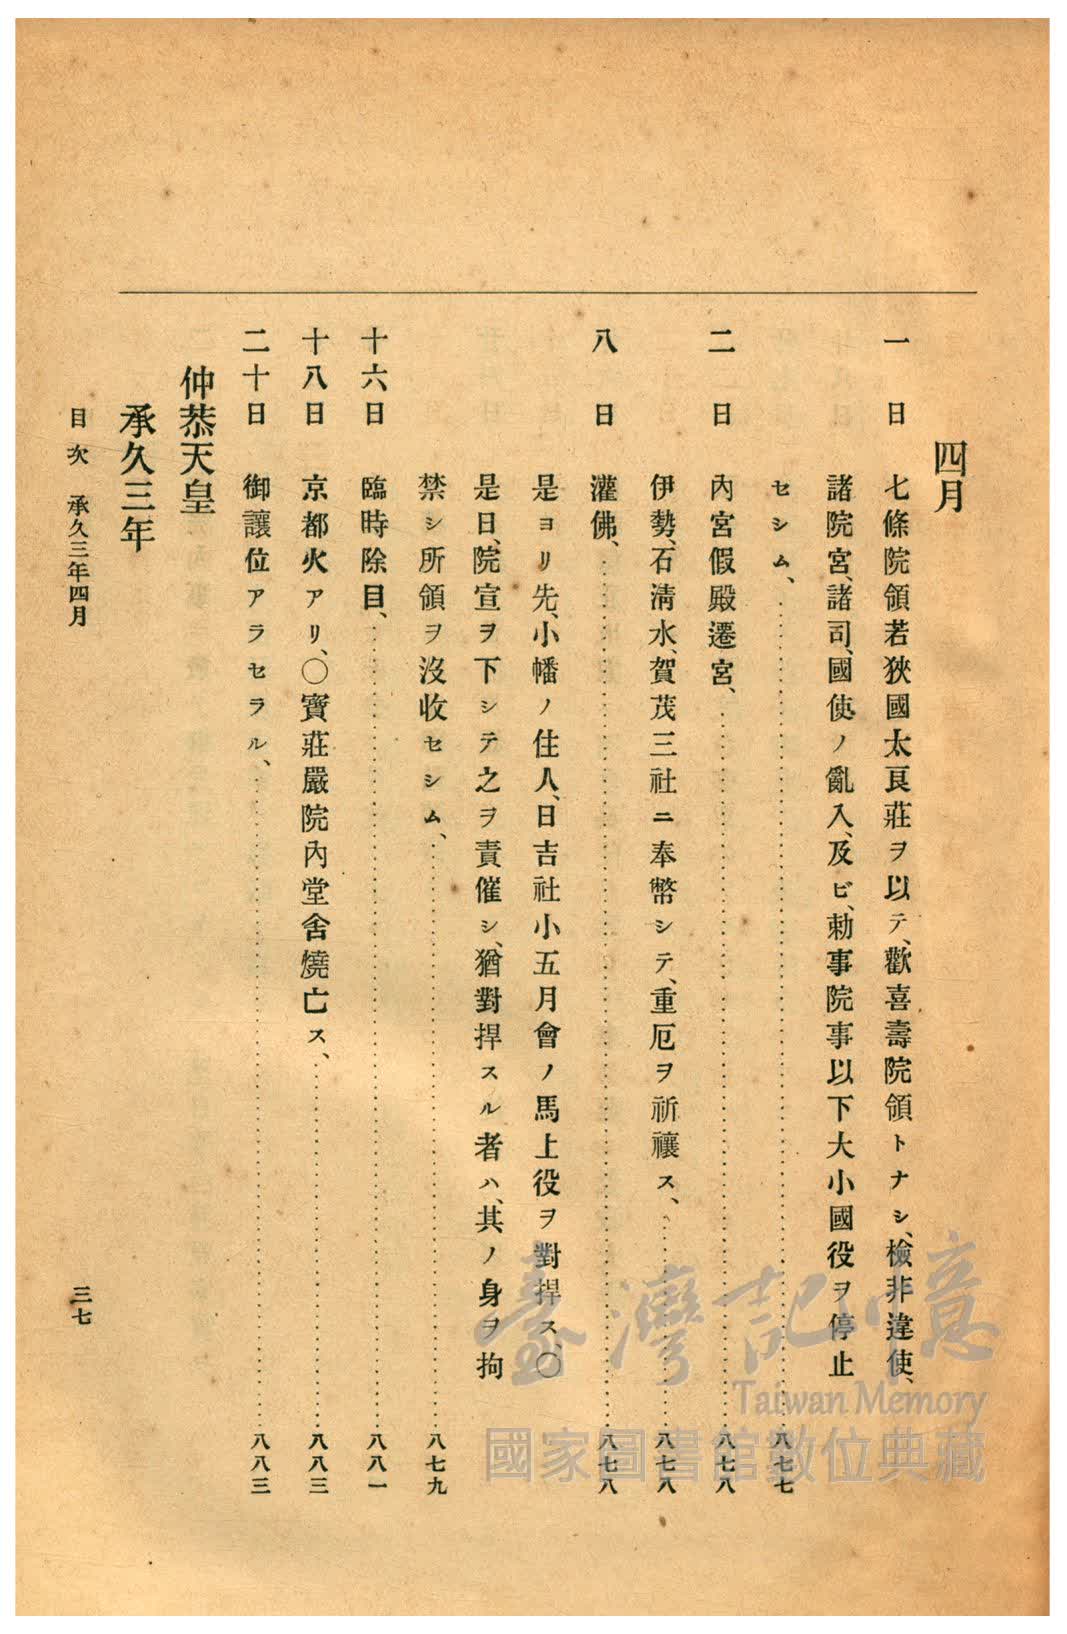 四月
一日 七條院領若狹國太良莊ヲ以テ、歡喜壽院領トナシ、檢非違使、
諸院宮、諸司、國使ノ亂入、及ビ、勅事院事以下大小國役ヲ停止
セシム、……八七七
二日 內宮假殿遷宮、……八七八
伊勢、石淸水、賀茂三社ニ奉幣シテ、重厄ヲ祈禳ス、……八七八
八日 灌佛、……八七八
是ヨリ先、小幡ノ住人、日吉社小五月會ノ馬上役ヲ對捍ス、〇
是日、院宣ヲ下シテ之ヲ責催シ、猶對捍スル者ハ、其ノ身ヲ拘
禁シ所領ヲ沒收セシム、……八七九
十六日 臨時除目、……八八一
十八日 京都火アリ、〇寶莊嚴院內堂舍燒亡ス、……八八三
二十日 御讓位アラセラル、……八八三
仲恭天皇
承久三年
目次 承久三年四月 三七
臺灣記憶
Taiwan Memory
國家圖書館數位典藏